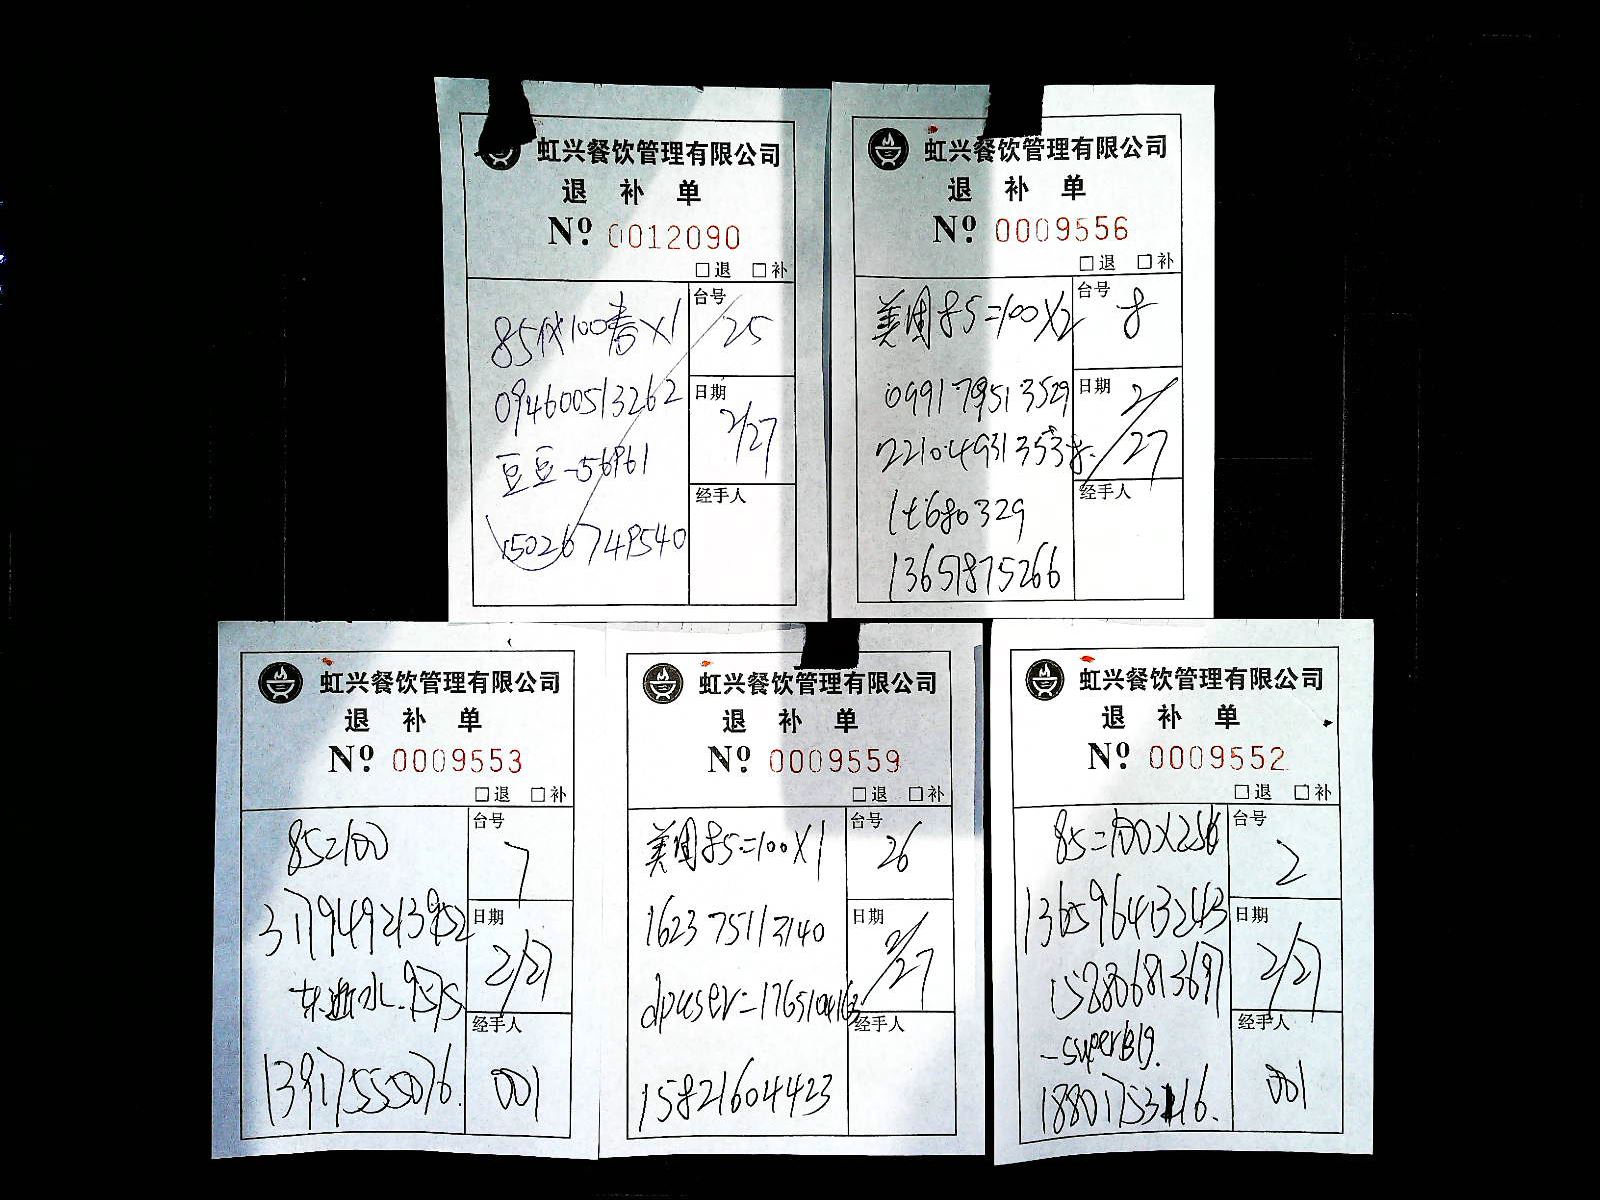 虹兴餐饮管理有限公司
退 补 单
Nº 0012090
□退 □补
85代100春X1
台号
25
094600513262
日期
2/27
豆豆-56961
经手人
15026749540
虹兴餐饮管理有限公司
退 补 单
Nº 0009556
□退 □补
美团85=100X2
台号
8
099179513529
日期
2/27
221049313538.
经手人
lt680329
13651875266
虹兴餐饮管理有限公司
退 补 单
Nº 0009553
□退 □补
85=100
台号
7
317949213952
日期
2/27
东逝水.9575
经手人
001
13917555076.
虹兴餐饮管理有限公司
退 补 单
Nº 0009559
□退 □补
美团85=100X1
台号
26
162375113140
日期
2/27
dpuser=1765104163
经手人
15821604423
虹兴餐饮管理有限公司
退 补 单
Nº 0009552
□退 □补
85=100X2
台号
2
日期
2/27
-superB19.
经手人
001